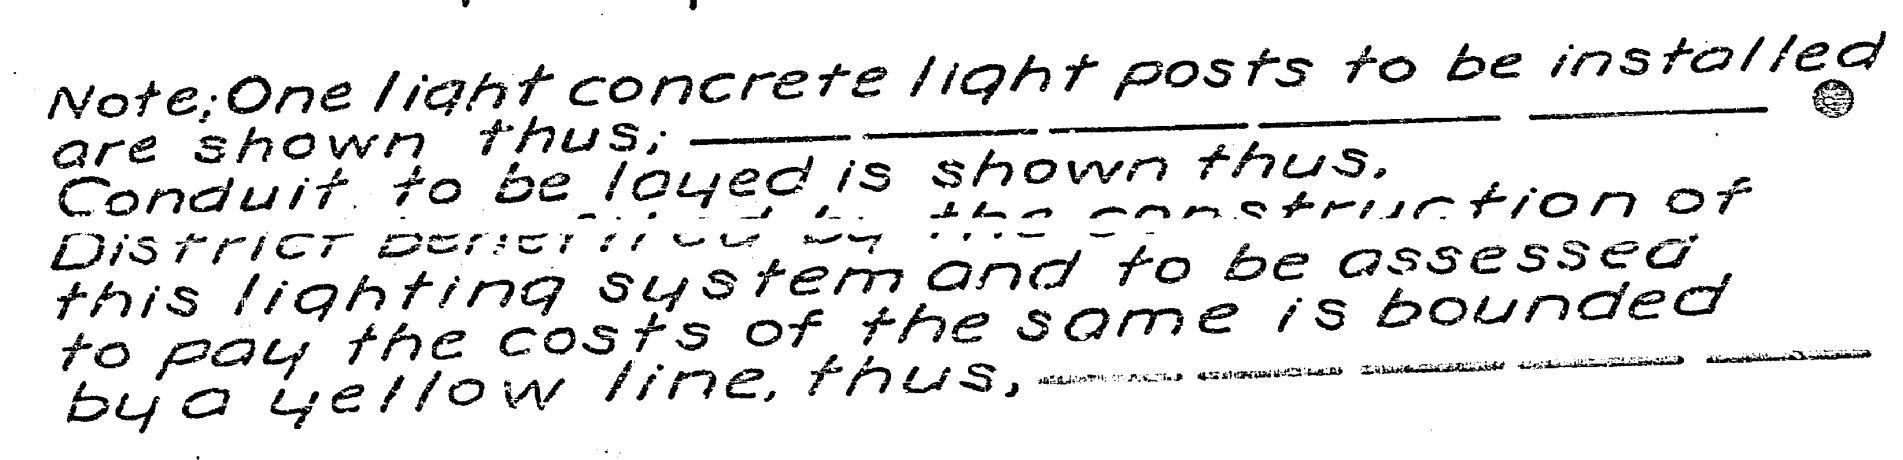 Note; One light concrete light posts to be installed
are shown thus;
Conduit to be layed is shown thus.
District benefited by the construction of
this lighting system and to be assessed,
to pay the costs of the same is bounded
by a yellow line, thus,